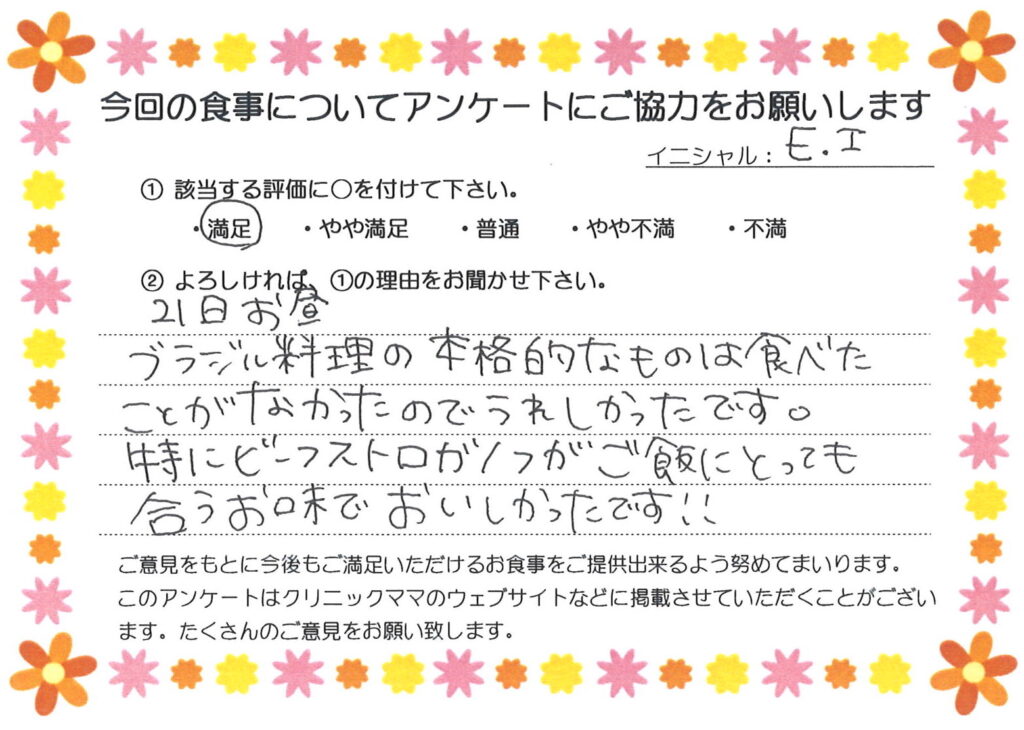 今回の食事についてアンケートにご協力をお願いします
イニシャル：E.I
① 該当する評価に○を付けて下さい。
・満足 ・やや満足 ・普通 ・やや不満 ・不満
② よろしければ、①の理由をお聞かせ下さい。
21日お昼
ブラジル料理の本格的なものは食べた
ことがなかったのでうれしかったです。
特にビーフストロガノフがご飯にとっても
合うお味でおいしかったです!!
ご意見をもとに今後もご満足いただけるお食事をご提供出来るよう努めてまいります。
このアンケートはクリニックママのウェブサイトなどに掲載させていただくことがござい
ます。たくさんのご意見をお願い致します。